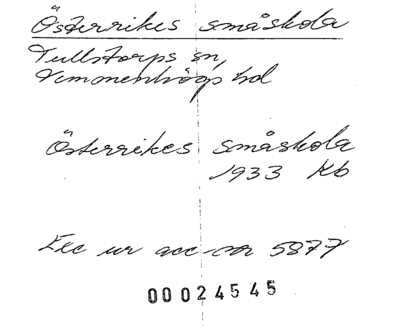 Österrikes småskola
Tullstorps sn,
Vemmenhögs hd
Österrikes småskola
1933 Kb
Exc ur acc-nr 5877
00024545